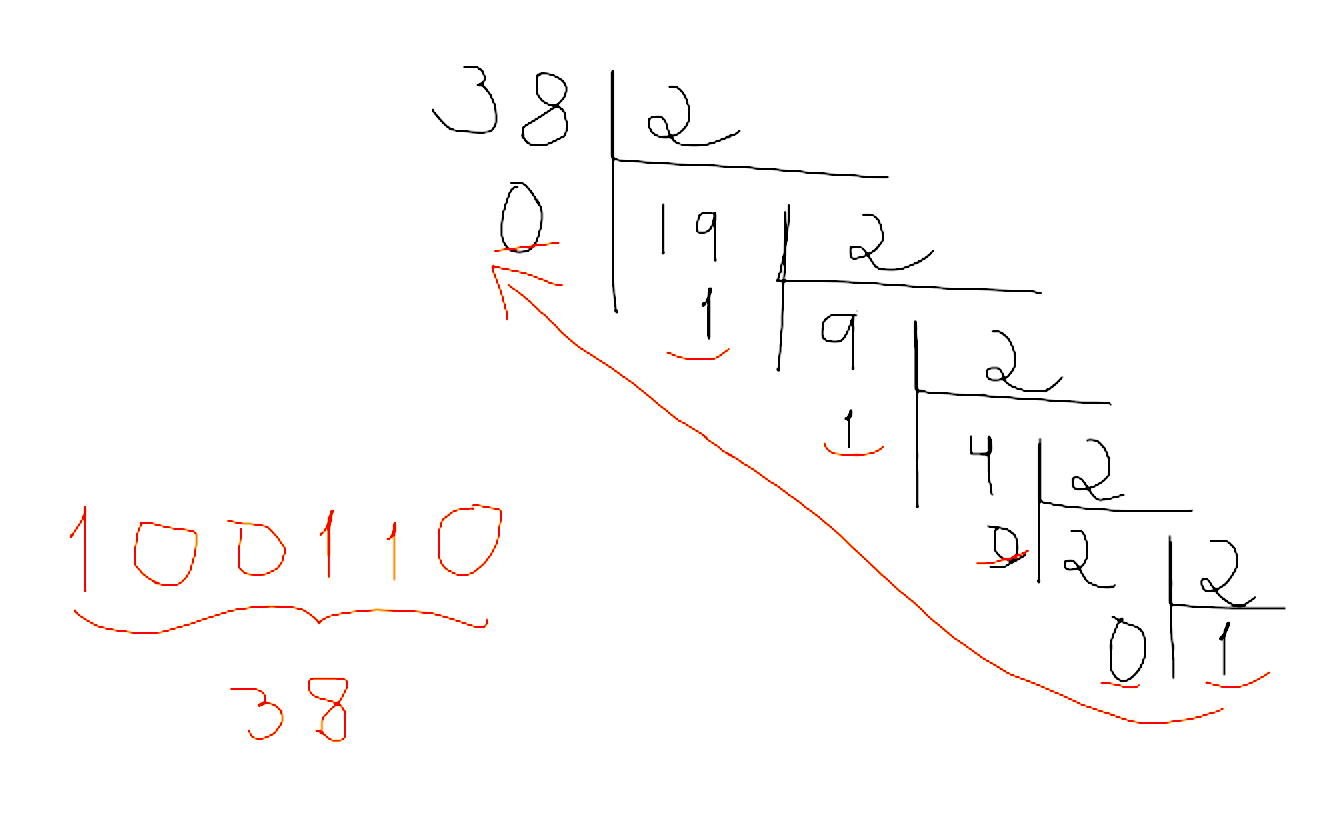 38 2
0 19 2
1 9 2
1 4 2
0 2 2
0 1
100110
38